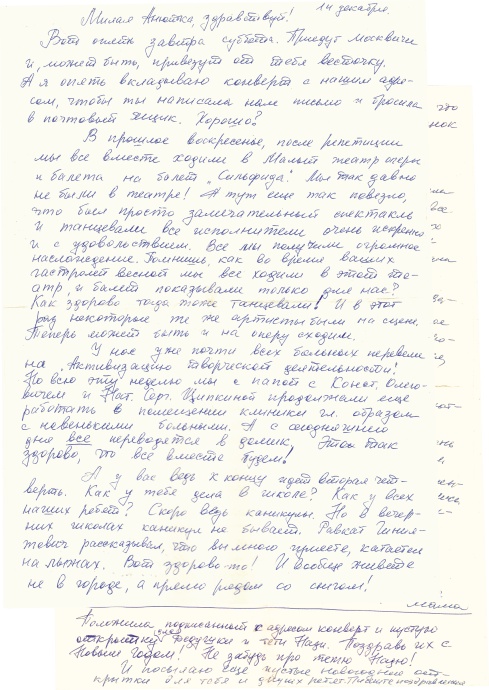 14 декабря.
Милая Анютка, здравствуй!
Вот опять завтра суббота. Приедут москвичи
и, может быть, привезут от тебя весточку.
А я опять вкладываю конверт с нашим адре-
сом, чтобы ты написала нам письмо и бросила
в почтовый ящик. Хорошо?
В прошлое воскресенье, после репетиции
мы все вместе ходили в Малый театр оперы
и балета на балет „Сильфида". Мы так давно
не были в театре! А тут ещё так повезло,
что был просто замечательный спектакль
и танцевали все исполнители очень искренно
и с удовольствием. Все мы получили огромное
наслаждение. Помнишь, как во время ваших
гастролей весной мы все ходили в этот те-
атр, и балет показывали только для нас?
Как здорово тогда тоже танцевали! И в этот
раз некоторые те же артисты были на сцене.
Теперь может быть и на оперу сходим.
У нас уже почти всех больных перевели
на „Активизацию творческой деятельности!
Но всю эту неделю мы с папой с Конст. Олего-
вичем и Нат. Серг. продолжали ещё
работать в помещении клиники гл. образом
с новенькими больными. А с сегодняшнего
дня все переводятся в домик. Это так
здорово, что все вместе будем!
А у вас ведь к концу идёт вторая чет-
верть. Как у тебя дела в школе? Как у всех
наших ребят? Скоро ведь каникулы. Но в вечер-
них школах каникул не бывает. Равкат
рассказывал, что вы много гуляете, катаетесь
на лыжах. Вот здорово-то! И вообще живёте
не в городе, а прямо рядом со снегом!
мама
Положила подписанный с адресом конверт и пустую
открытку для дедушки и тёти Нади. Поздравь их с
Новым Годом! Не забудь про тётю Надю!
И посылаю ещё пустые новогодние от-
крытки для тебя и других ребят. Пишите поздравления